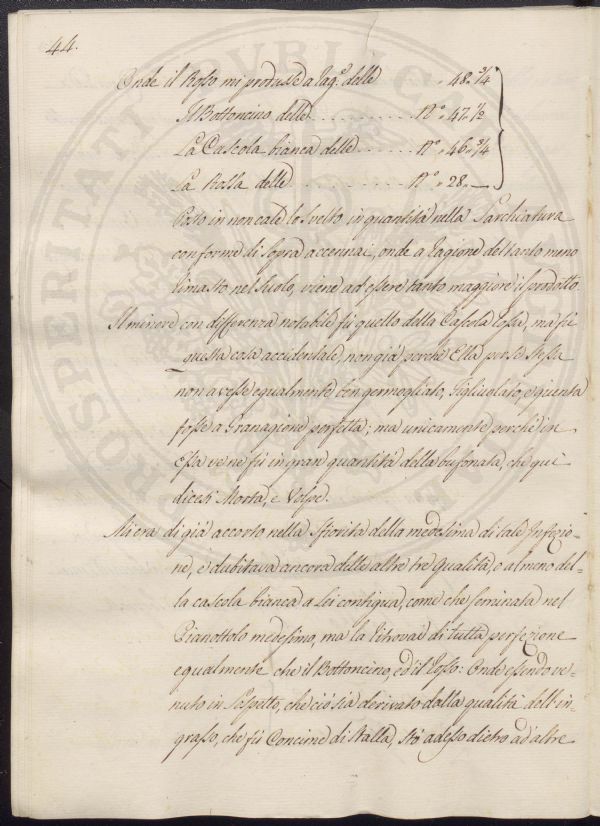 44.
Onde il Rosso mi produsse a rag.e delle „ 48. 3/4
Il Bottoncino delle . . . . . . . . . . N.o „ 47. 1/2
La Cascola bianca delle . . . . . . . N.o „ 46. 3/4
La Rossa delle . . . . . . . . . . N.o „ 28. —
Poso in non cale lo svelto in quantità nella Sarchiatura
conforme di sopra accennai, onde a ragione del tanto meno
rimasto nel suolo, viene ad essere tanto maggiore il prodotto.
Il minore con differenza notabile fù quello della Cascola rossa, ma fù
questa cosa accidentale, non già perchè Ella per se stessa
non avesse egualmente ben germogliato, figliuolato, e giunta
fosse a Granagione perfetta; ma unicamente perchè in
Essa ve ne fù in gran quantità della bufonata, che quì
dicesi Morta, e Volpe.
Mi era di già accorto nella sfiorità della medesima di tale Infezio-
ne, e dubitava ancora delle altre tre Qualità, o almeno del-
la cascola bianca a Lei contigua, come che seminata nel
Pianottolo medesimo, ma la ritrovai di tutta perfezione
egualmente che il Bottoncino, ed il rosso: Onde essendo ve-
nuto in sospetto, che ciò sia derivato dalla qualità dell'in-
grasso, che fù Concime di stalla, stò adesso dietro ad altre
PROSPERITATI PVBLIC